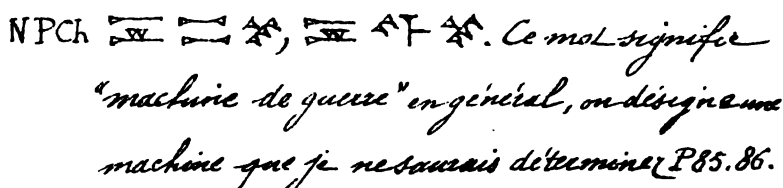 NPCh , . Ce mot signifie
"machine de guerre" en général, ou désigne une
machine que je ne saurais déterminer P85.86.